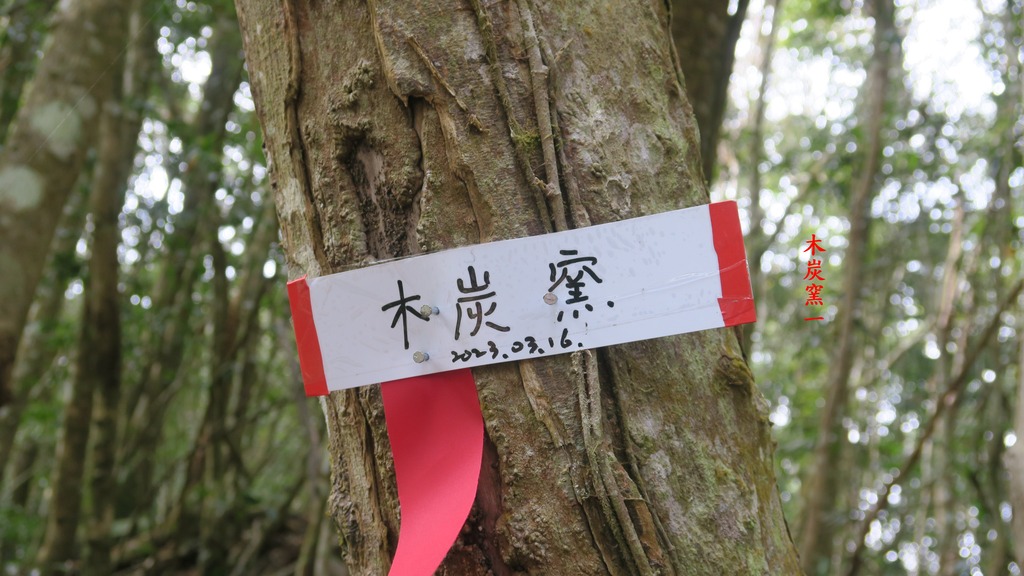 木炭窯
2023.03.16.
木炭窯一